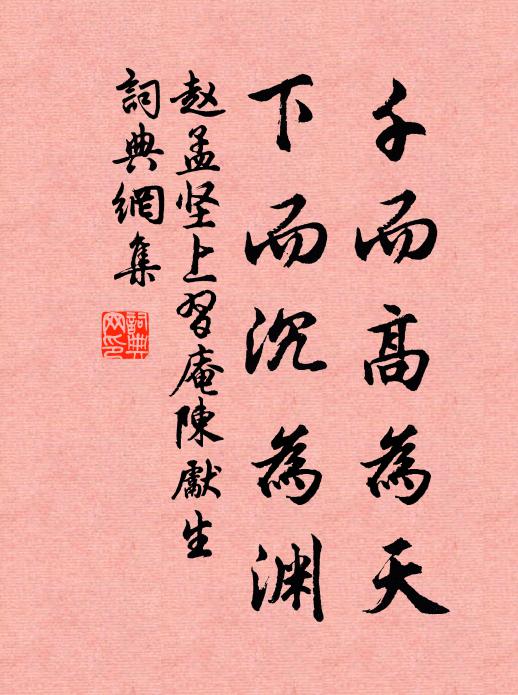 千而高為天
下而沉為渊
赵孟坚上習庵陳獻生
詞典網集
詞典網印